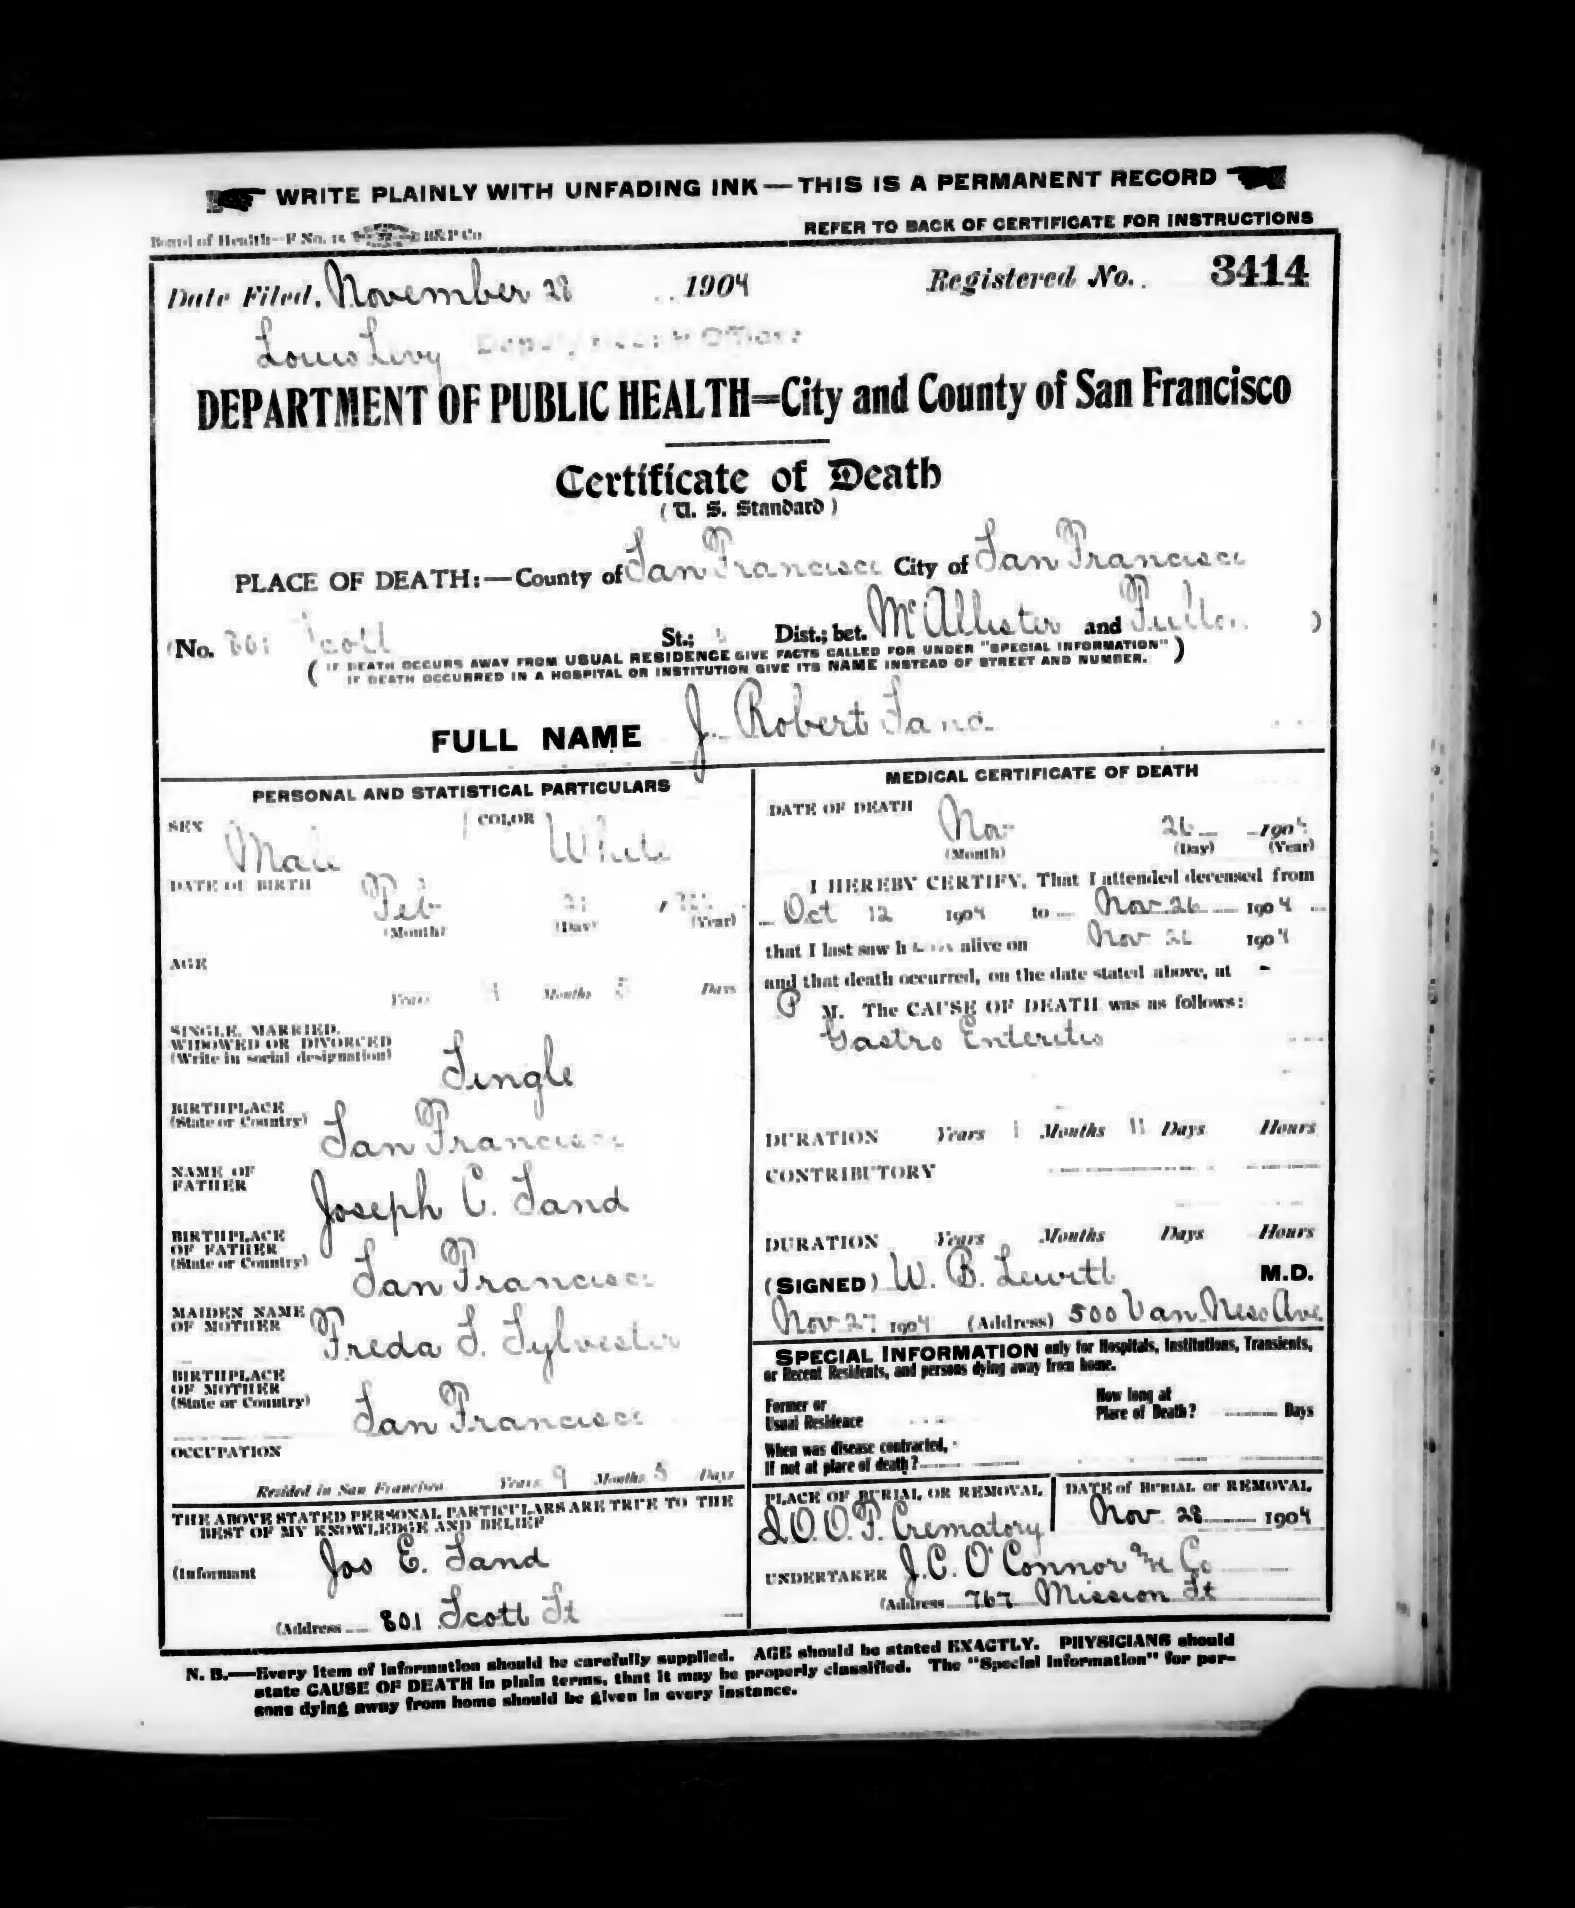 WRITE PLAINLY WITH UNFADING INK — THIS IS A PERMANENT RECORD
Board of Health—F No. 15 B&P Co
REFER TO BACK OF CERTIFICATE FOR INSTRUCTIONS
Date Filed, November 28 1904 Registered No. 3414
Louis Levy Deputy Health Officer
DEPARTMENT OF PUBLIC HEALTH=City and County of San Francisco
Certificate of Death
(U. S. Standard)
PLACE OF DEATH:—County of San Francisco City of San Francisco
(No. 801 Scott St.; Dist.; bet. McAllister and Fulton )
( IF DEATH OCCURS AWAY FROM USUAL RESIDENCE GIVE FACTS CALLED FOR UNDER "SPECIAL INFORMATION" )
IF DEATH OCCURRED IN A HOSPITAL OR INSTITUTION GIVE ITS NAME INSTEAD OF STREET AND NUMBER.
FULL NAME J. Robert Sand
PERSONAL AND STATISTICAL PARTICULARS
SEX Male COLOR White
DATE OF BIRTH Feb 21
(Month) (Day) (Year)
AGE
Years 9 Months 5 Days
SINGLE, MARRIED,
WIDOWED OR DIVORCED
(Write in social designation) Single
BIRTHPLACE
(State or Country) San Francisco
NAME OF
FATHER Joseph C. Sand
BIRTHPLACE
OF FATHER
(State or Country) San Francisco
MAIDEN NAME
OF MOTHER Freda S. Sylvester
BIRTHPLACE
OF MOTHER
(State or Country) San Francisco
OCCUPATION
Resided in San Francisco Years 9 Months 5 Days
THE ABOVE STATED PERSONAL PARTICULARS ARE TRUE TO THE
BEST OF MY KNOWLEDGE AND BELIEF
(Informant Jos E. Sand
(Address 801 Scott St
MEDICAL CERTIFICATE OF DEATH
DATE OF DEATH Nov 26 1904
(Month) (Day) (Year)
I HEREBY CERTIFY, That I attended deceased from
Oct 12 1904 to Nov 26 1904
that I last saw h alive on Nov 26 1904
and that death occurred, on the date stated above, at -
P M. The CAUSE OF DEATH was as follows:
Gastro Enteritis
DURATION Years 1 Months 11 Days Hours
CONTRIBUTORY
DURATION Years Months Days Hours
(SIGNED) W. B. Lewitt M.D.
Nov 27 1904 (Address) 500 Van Ness Ave
SPECIAL INFORMATION only for Hospitals, Institutions, Transients,
or Recent Residents, and persons dying away from home.
Former or
Usual Residence
How long at
Place of Death? Days
When was disease contracted,
If not at place of death?
PLACE OF BURIAL OR REMOVAL
I.O.O.F. Crematory
DATE of BURIAL or REMOVAL
Nov 28 1904
UNDERTAKER J.C. O'Connor & Co
(Address 767 Mission St
N. B.—Every item of information should be carefully supplied. AGE should be stated EXACTLY. PHYSICIANS should
state CAUSE OF DEATH in plain terms, that it may be properly classified. The "Special Information" for per-
sons dying away from home should be given in every instance.